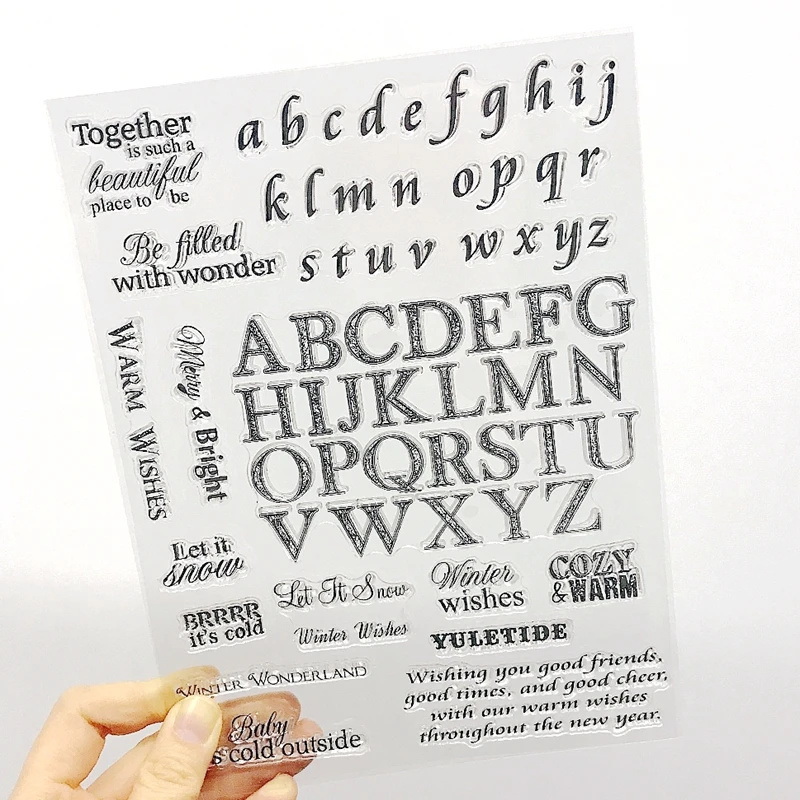 Together
is such a
beautiful
place to be
Be filled
with wonder
a b c d e f g h i j
k l m n o p q r
s t u v w x y z
WARM WISHES
Merry & Bright
A B C D E F G
H I J K L M N
O P Q R S T U
V W X Y Z
Let it
snow
Let It Snow
Winter
wishes
COZY
& WARM
BRRRR
it's cold
Winter Wishes
YULETIDE
WINTER WONDERLAND
Baby
cold outside
Wishing you good friends,
good times, and good cheer,
with our warm wishes
throughout the new year.